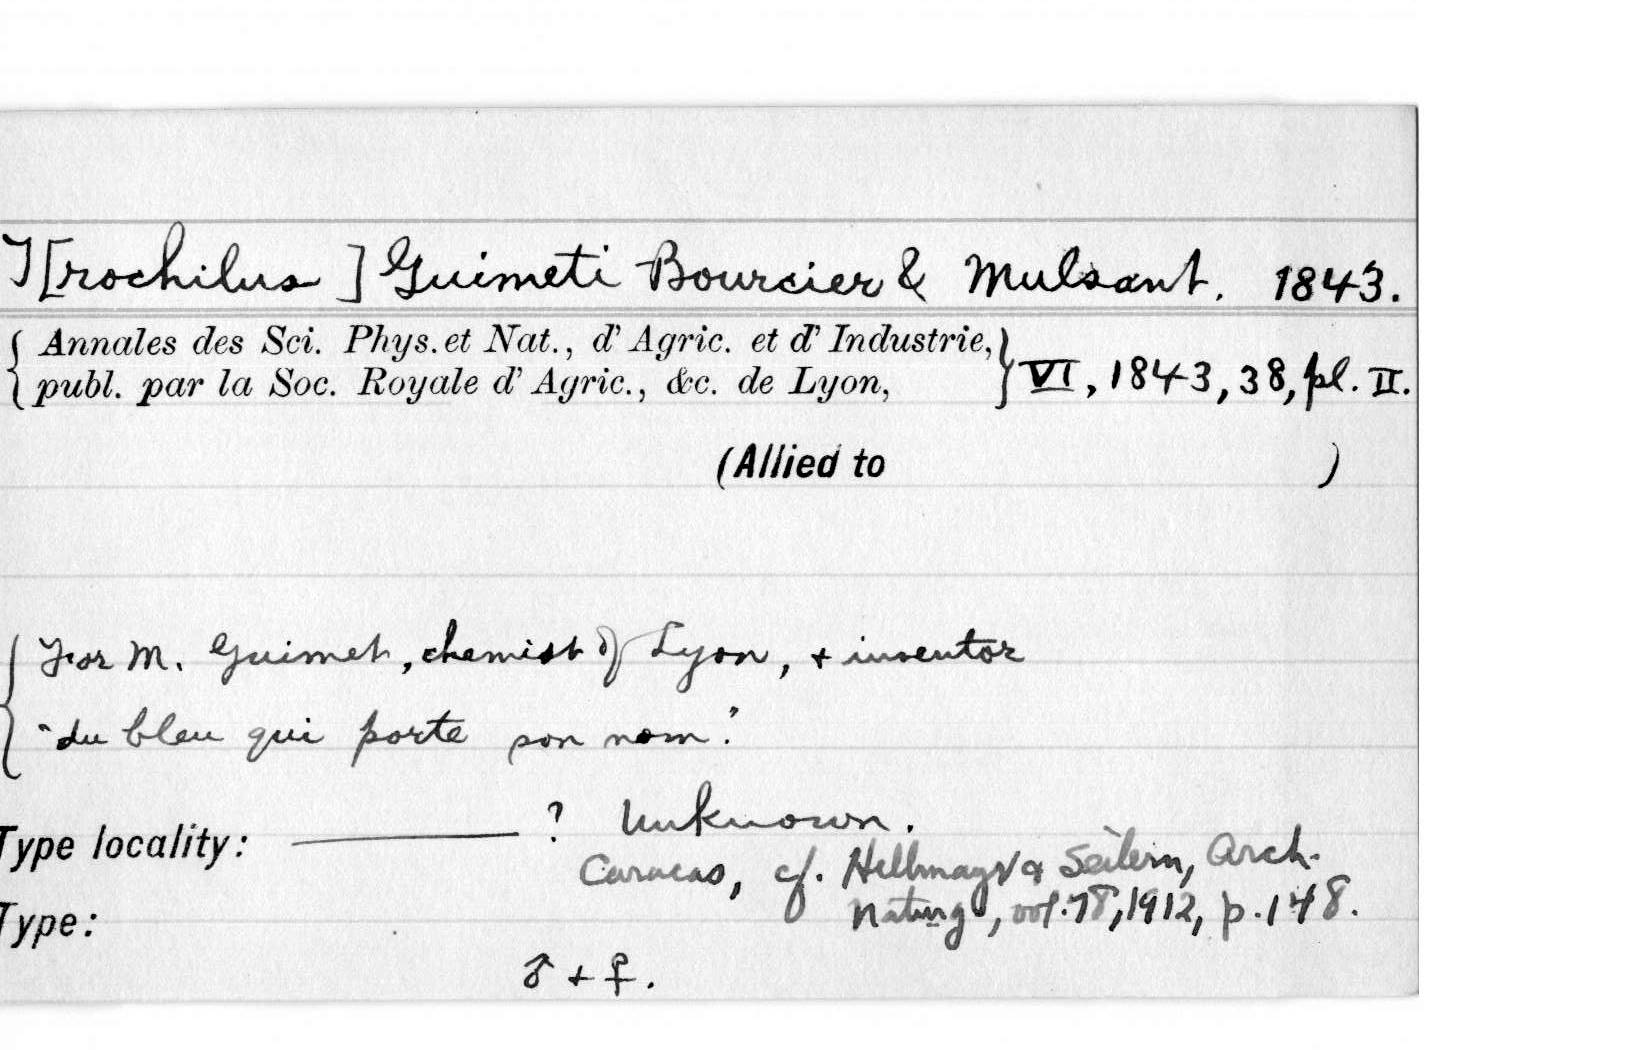 T[rochilus ] Guimeti Bourcier & Mulsant. 1843.
{ Annales des Sci. Phys. et Nat., d' Agric. et d' Industrie,
publ. par la Soc. Royale d' Agric., &c. de Lyon, } VI, 1843, 38, pl. II.
(Allied to )
{ For M. Guimet, chemist of Lyon, + inventor
"du bleu qui porte son nom."
Type locality: ——— ? Unknown.
Caracas, cf. Hellmayr & Seilern, Arch.
Naturg., vol. 78, 1912, p. 148.
Type:
♂ + ♀.